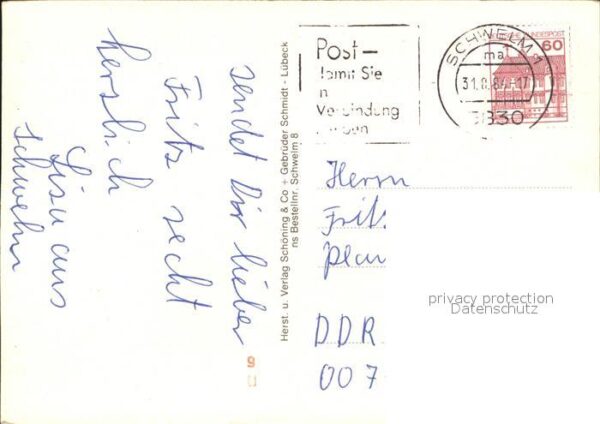 sendet Dir lieber
Fritz recht
herzlich
Lisa aus
Schwelm
Herst. u. Verlag Schöning & Co + Gebrüder Schmidt - Lübeck
ns Bestellnr. Schwelm 8
Post–
damit Sie
in
Verbindung
SCHWELM 1
ma
31.8.84-17
5830
BUNDESPOST
60
Herrn
Frit.
Plau
DDR
007
privacy protection
Datenschutz